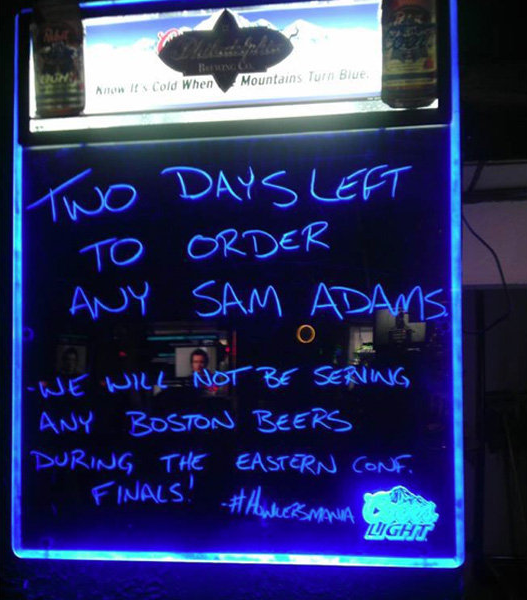 Philadelphia
BREWING CO.
Know It's Cold When Mountains Turn Blue.
TWO DAYS LEFT
TO ORDER
ANY SAM ADAMS.
-WE WILL NOT BE SERVING
ANY BOSTON BEERS
DURING THE EASTERN CONF.
FINALS!
-#HOWLERSMANIA
Coors
LIGHT